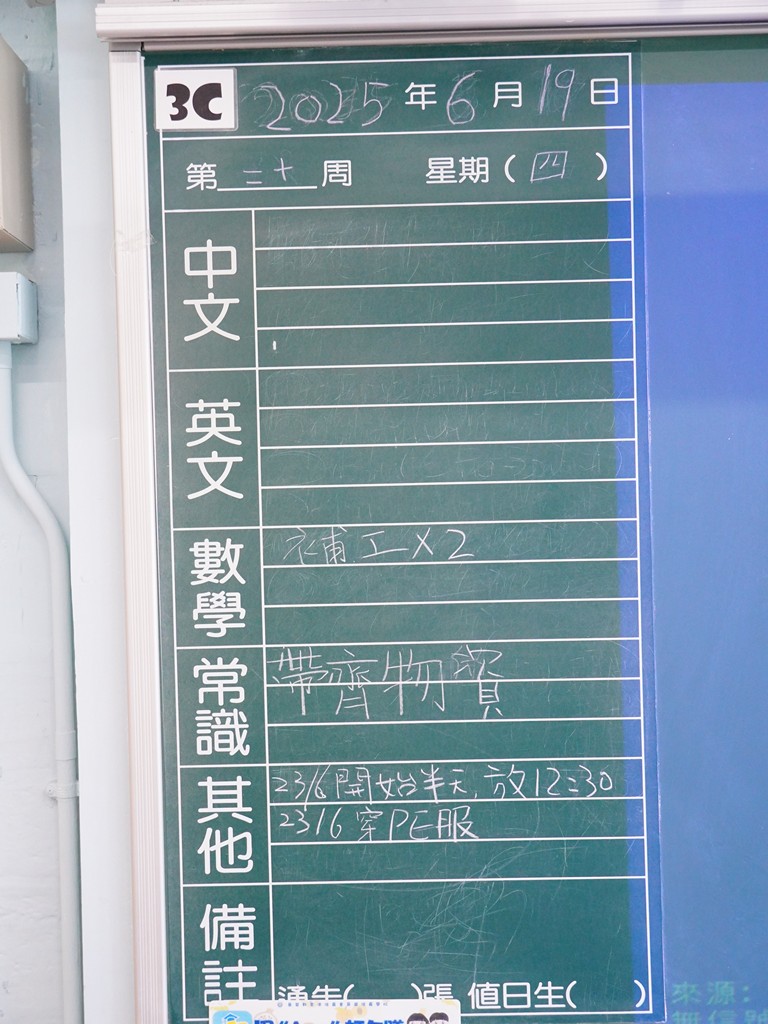 3C 2025年6月19日
第二十周 星期(四)
中文
英文
數學 補工X2
常識 帶齊物資
其他 23/6開始半天,放12:30
23/6 穿PE服
備註
通告( )張 值日生( )
來源:
無信號